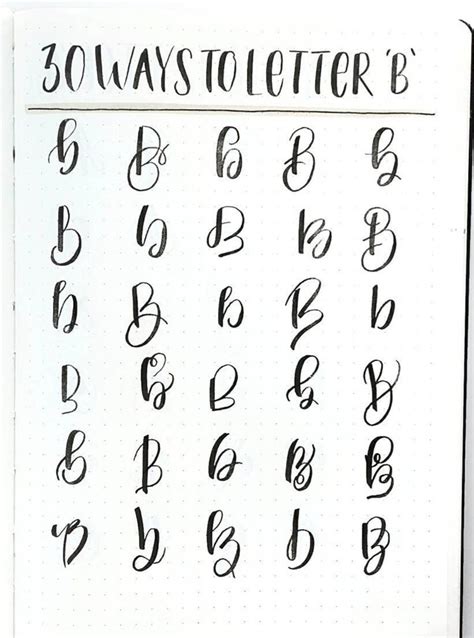 30 WAYS TO LETTER 'B'
b B b B b
B b B b B
b B b B b
B b B b B
b B b B B
B b B b B